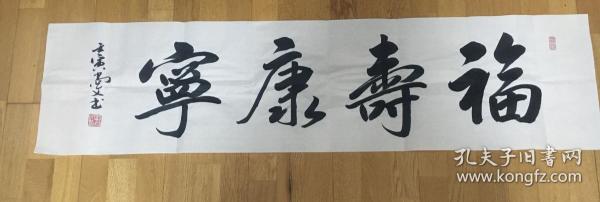 福壽康寧
壬寅尚文书
孔夫子旧书网
www.kongfz.com